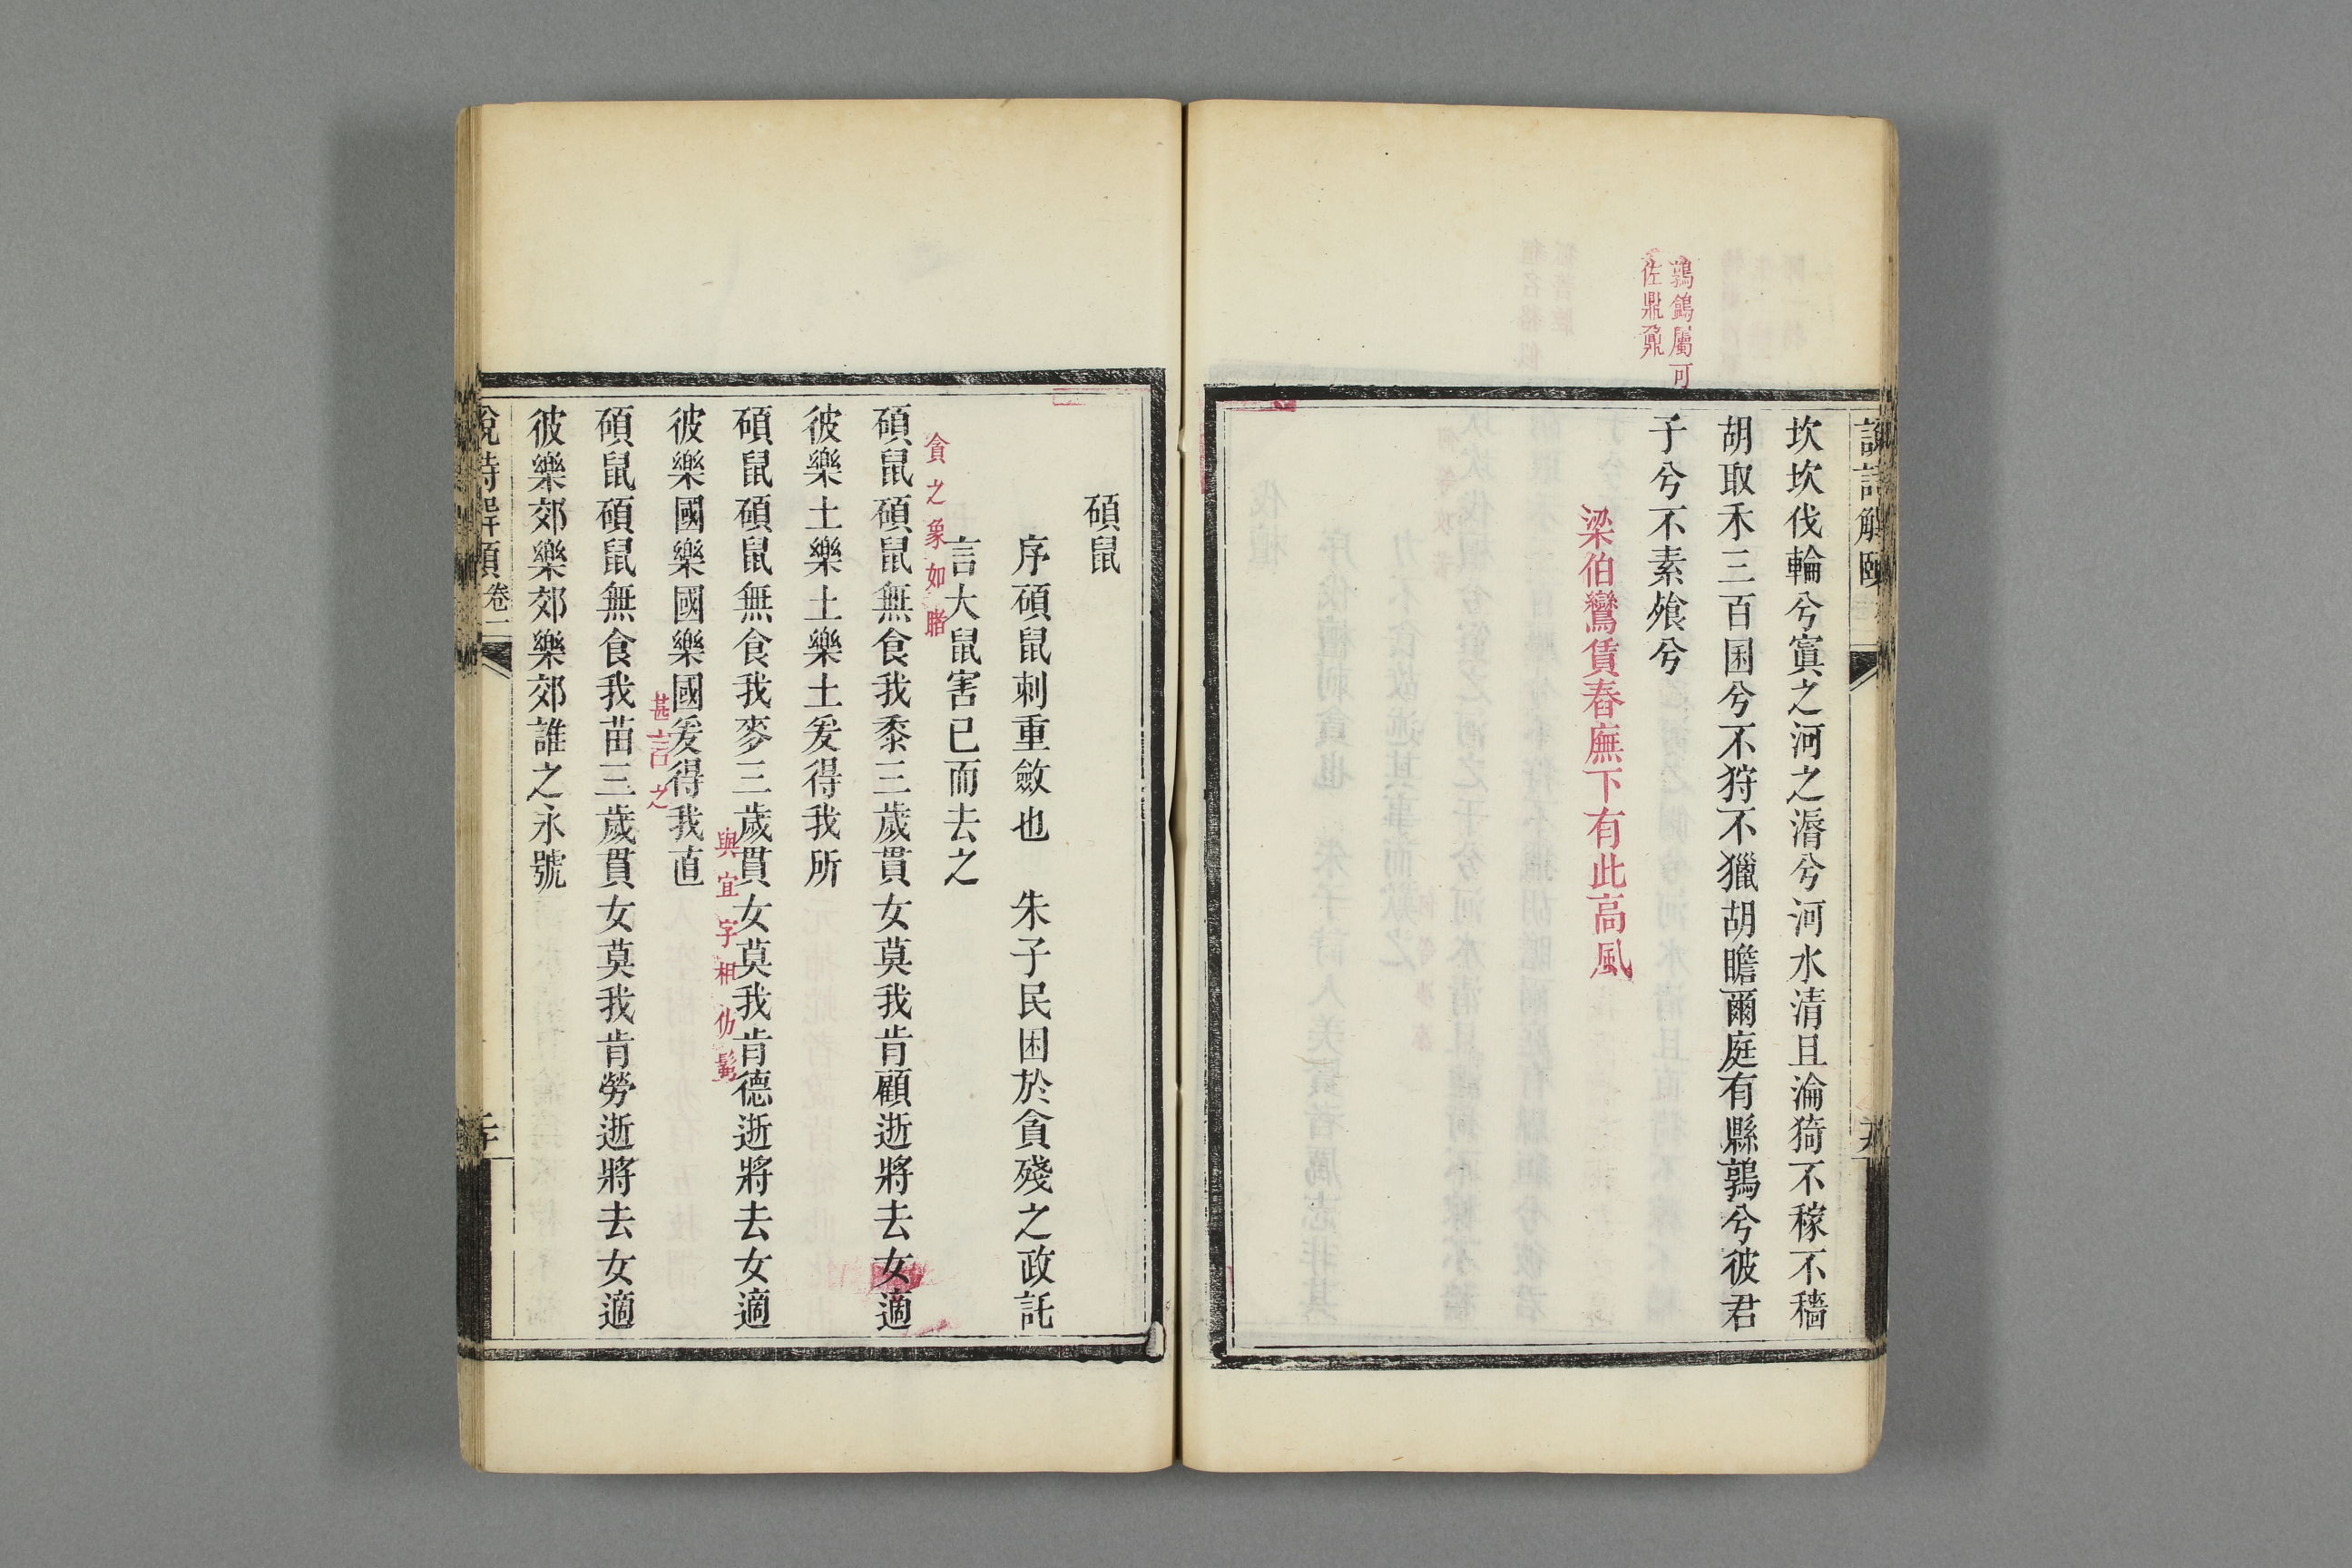 說詩解頤
坎坎伐輪兮寘之河之漘兮河水清且淪猗不稼不穡
胡取禾三百囷兮不狩不獵胡瞻爾庭有縣鶉兮彼君
子兮不素飧兮
鶉鷂屬可
佐鼎鼐
梁伯鸞賃舂廡下有此高風
碩鼠
序碩鼠刺重斂也　朱子民困於貪殘之政託
言大鼠害已而去之
貪之象如賂
碩鼠碩鼠無食我黍三歲貫女莫我肯顧逝將去女適
彼樂土樂土樂土爰得我所
碩鼠碩鼠無食我麥三歲貫女莫我肯德逝將去女適
與宜字相仿髴
彼樂國樂國樂國爰得我直
甚言之
碩鼠碩鼠無食我苗三歲貫女莫我肯勞逝將去女適
彼樂郊樂郊樂郊誰之永號
說詩解頤 卷一